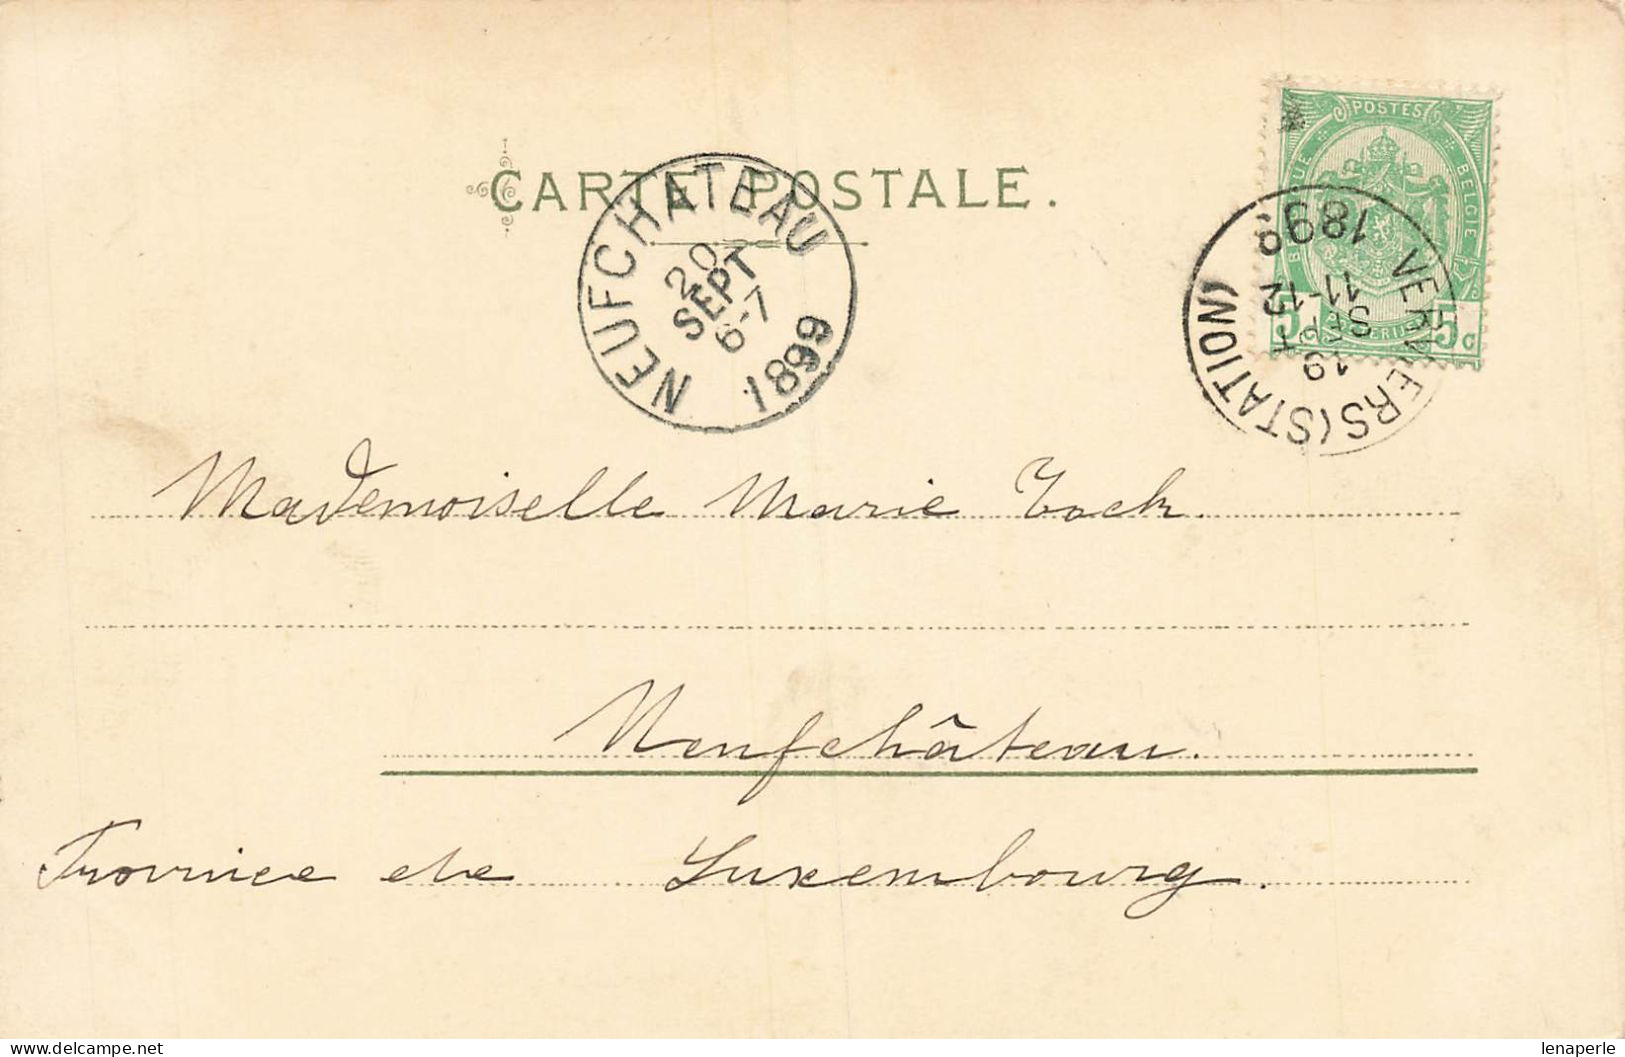 CARTE POSTALE.
NEUFCHATEAU
20
SEPT
6-7
1899
POSTES
BELGIQUE
BELGIE
5
5c
VERVIERS (STATION)
19
SEPT
11-12
1899
Mademoiselle Marie Tock.
Neufchâteau.
Province de Luxembourg.
lenaperle